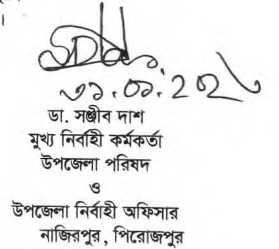 ।
৩১.০১.২০২
ডা. সঞ্জীব দাশ
মুখ্য নির্বাহী কর্মকর্তা
উপজেলা পরিষদ
ও
উপজেলা নির্বাহী অফিসার
নাজিরপুর, পিরোজপুর